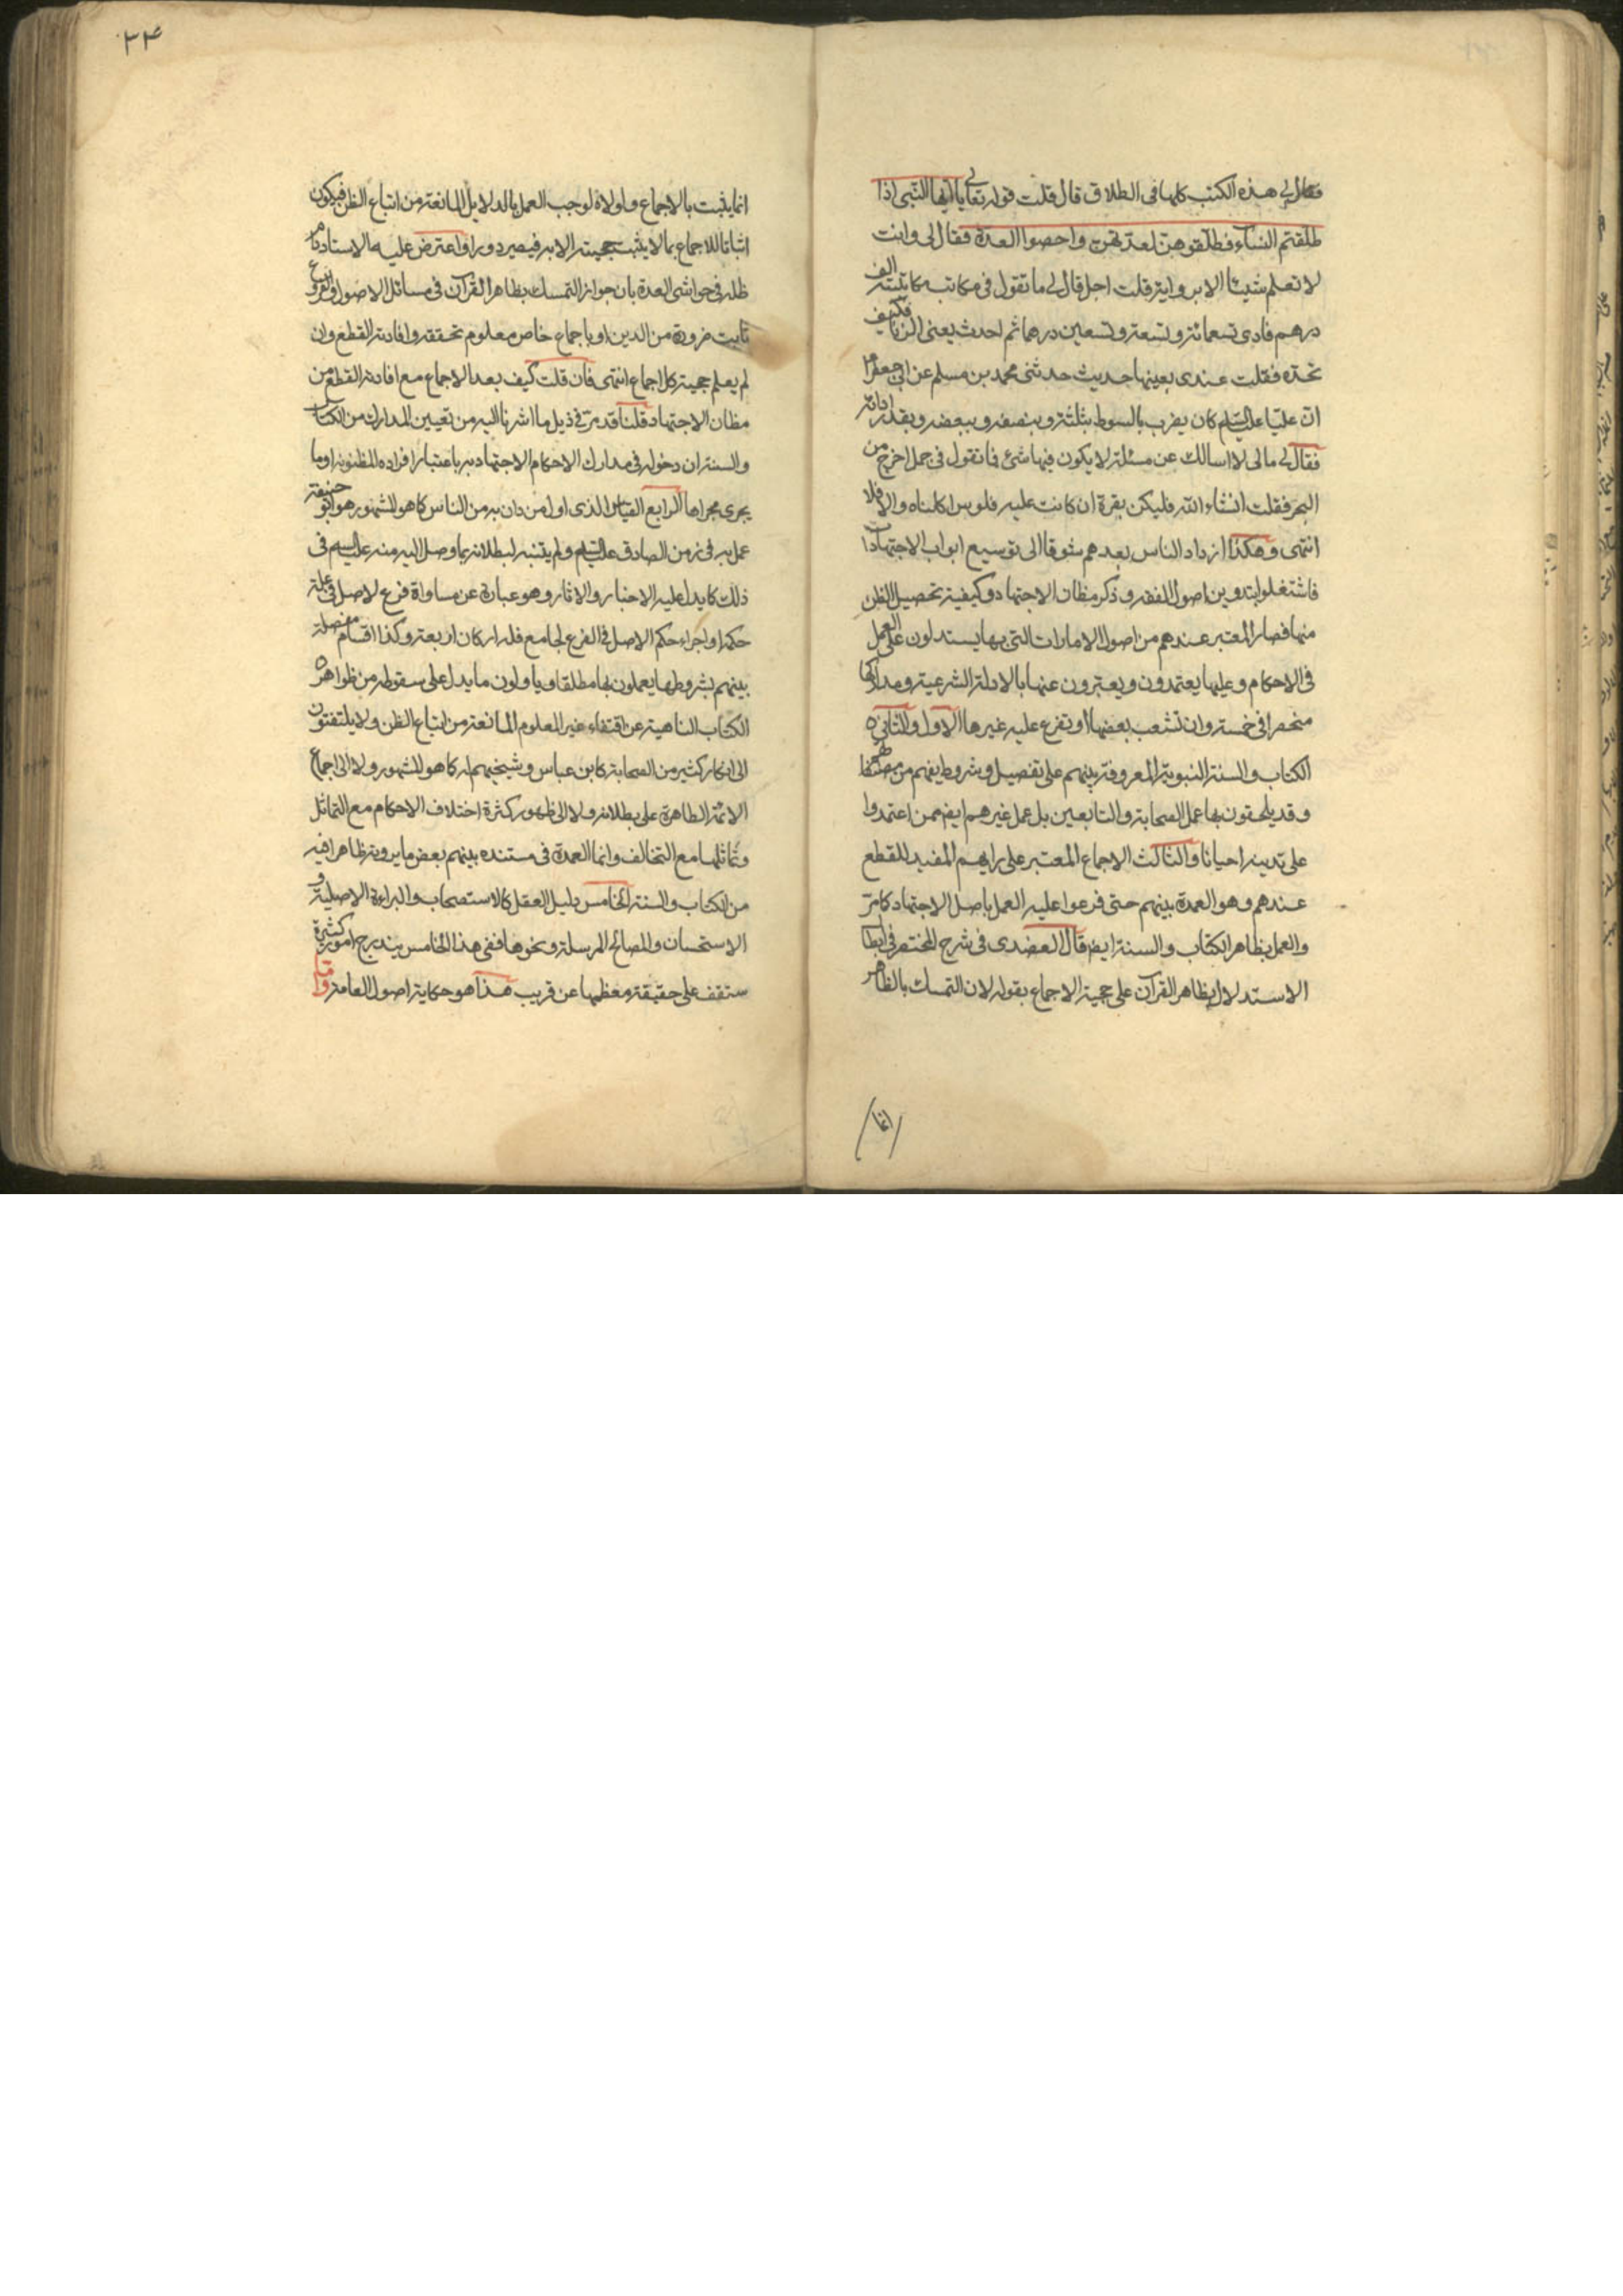 فقال لي هذه الكتب كلها في الطلاق قال قلت قوله تعالى يا ايها النبي اذا
طلقتم النساء فطلقوهن لعدتهن واحصوا العدة فقال لي وانت
لا تعلم شيئا الا برواية قلت اجل قال لي ما تقول في مكاتب مكاتبته الف
درهم فادى تسعمائة وتسعة وتسعين درهما ثم احدث يعني الزنا فكيف
تحده فقلت عندي بعينها حديث حدثني محمد بن مسلم عن ابي جعفر ع
ان عليا عليه السلم كان يضرب بالسوط بثلثه وبنصفه وببعضه وبقدر اداته
فقال لي مالي لا اسالك عن مسئلة لا يكون فيها شئ فما تقول في جمل اخرج من
البحر فقلت انشاء الله فليكن بقرة ان كانت عليه فلوس اكلناه والا فلا
انتهى وهكذا ازداد الناس بعدهم شوقا الى توسيع ابواب الاجتهادات
فاشتغلوا بتدوين اصول الفقه وذكر مظان الاجتهاد وكيفية تحصيل الظن
منها فصار المعتبر عندهم من اصول الامارات التي بها يستدلون على العمل
في الاحكام وعليها يعتمدون ويعبرون عنها بالادلة الشرعية ومداركها
منحصرا في خمسة وان تشعب بعضها او تفرع عليه غيرها الاول والثاني
الكتاب والسنة النبوية المعروفة بينهم على تفصيل وشروط يفهم من
وقد يلحقون بها عمل الصحابة والتابعين بل عمل غيرهم ايضا ممن اعتمدوا
على تدينه احيانا والثالث الاجماع المعتبر على رايهم المفيد للقطع
عندهم وهو العمدة بينهم حتى فرعوا عليه العمل باصل الاجتهاد كما مر
والعمل بظاهر الكتاب والسنة ايضا قال العضدي في شرح المختصر في ابطال
الاستدلال بظاهر القرآن على حجية الاجماع بقوله لان التمسك بالظاهر
انما
٣٤
انما يثبت بالاجماع ولولاه لوجب العمل بالدلايل المانعة من اتباع الظن فيكون
اثباتا للاجماع بما لا يثبت حجيته الا به فيصير دورا واعترض عليه الاستاد دام
ظله في حواشي العدة بان جواز التمسك بظاهر القرآن في مسائل الاصول والفروع
ثابت ضرورة من الدين او باجماع خاص معلوم تحققه وافادته القطع وان
لم يعلم حجية كل اجماع انتهى فان قلت كيف يعد الاجماع مع افادته القطع من
مظان الاجتهاد قلنا قد مر في ذيل ما اشرنا اليه من تعيين المدارك من الكتاب
والسنة ان دخوله في مدارك الاحكام الاجتهادية باعتبار افراده المظنونة او ما
يجري مجراها الرابع القياس الذي اول من دان به من الناس كما هو المشهور هو ابو حنيفة
عمل به في زمن الصادق عليه السلم ولم يتنبه لبطلانه بما وصل اليه منه عليه السلم في
ذلك كما يدل عليه الاخبار والاثار وهو عبارة عن مساواة فرع لاصل في علة
حكمه او اجراء حكم الاصل في الفرع لجامع فله اركان اربعة وكذا اقسام مفصلة
بينهم بشروطها يعملون بها مطلقا وياولون ما يدل على سقوطه من ظواهر
الكتاب الناهية عن اقتفاء غير المعلوم المانعة من اتباع الظن ولا يلتفتون
الى انكار كثير من الصحابة كابن عباس وشيخيهم له كما هو المشهور ولا الى اجماع
الائمة الطاهرة على بطلانه ولا الى ظهور كثرة اختلاف الاحكام مع التماثل
وتماثلها مع التخالف وانما العمدة في مستنده بينهم بعض ما يرونه ظاهرا فيه
من الكتاب والسنة الخامس دليل العقل كالاستصحاب والبراءة الاصلية و
الاستحسان والمصالح المرسلة ونحوها ففي هذا الخامس يندرج امور كثيرة
ستقف على حقيقة معظمها عن قريب هذا هو حكاية اصول العامة واما